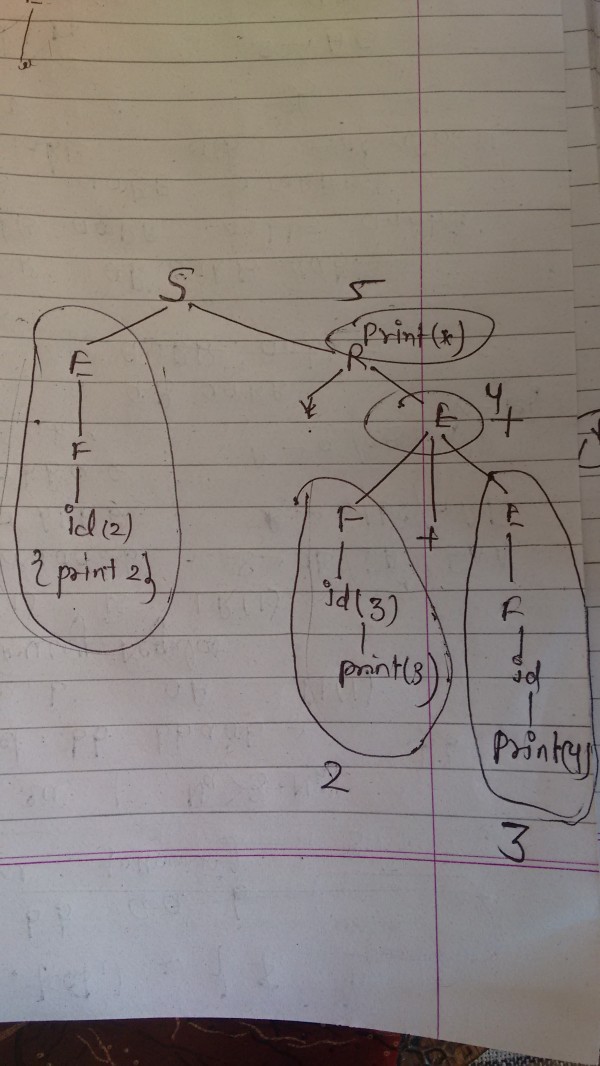 S 5
print(*)
E R
* E 4 +
F
id(2) F + E
{print 2} id(3) F
print(3) id
print(4)
2
3